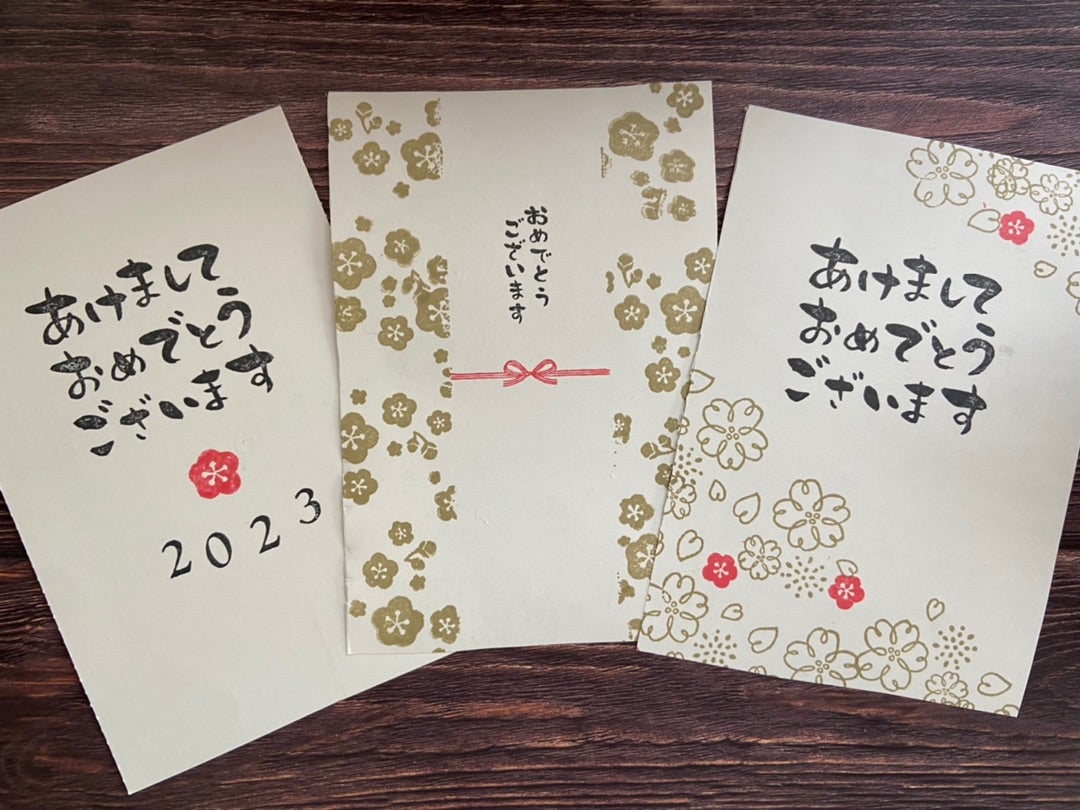 あけまして
おめでとう
ございます
2023
おめでとう
ございます
あけまして
おめでとう
ございます